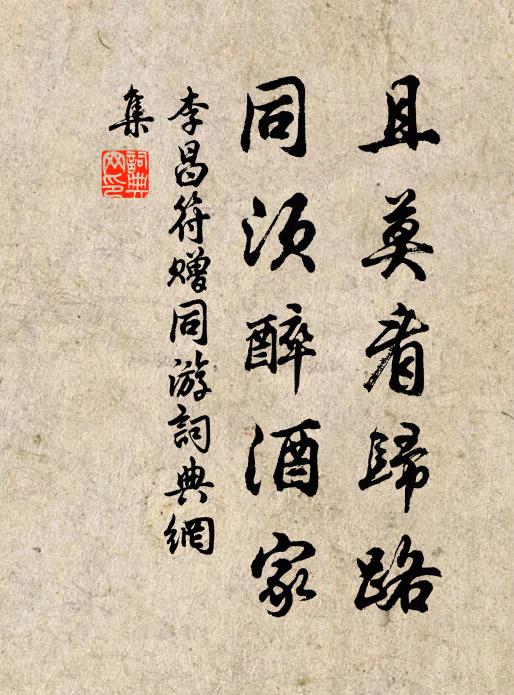 且莫看歸路
同須醉酒家
李昌符赠同游詞典網
集
詞典網印